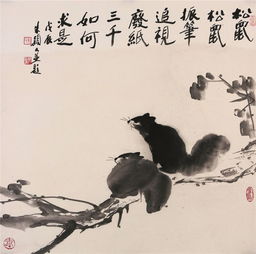 松鼠
松鼠
振筆
追視
廢紙
三千
如何
求是
戊辰